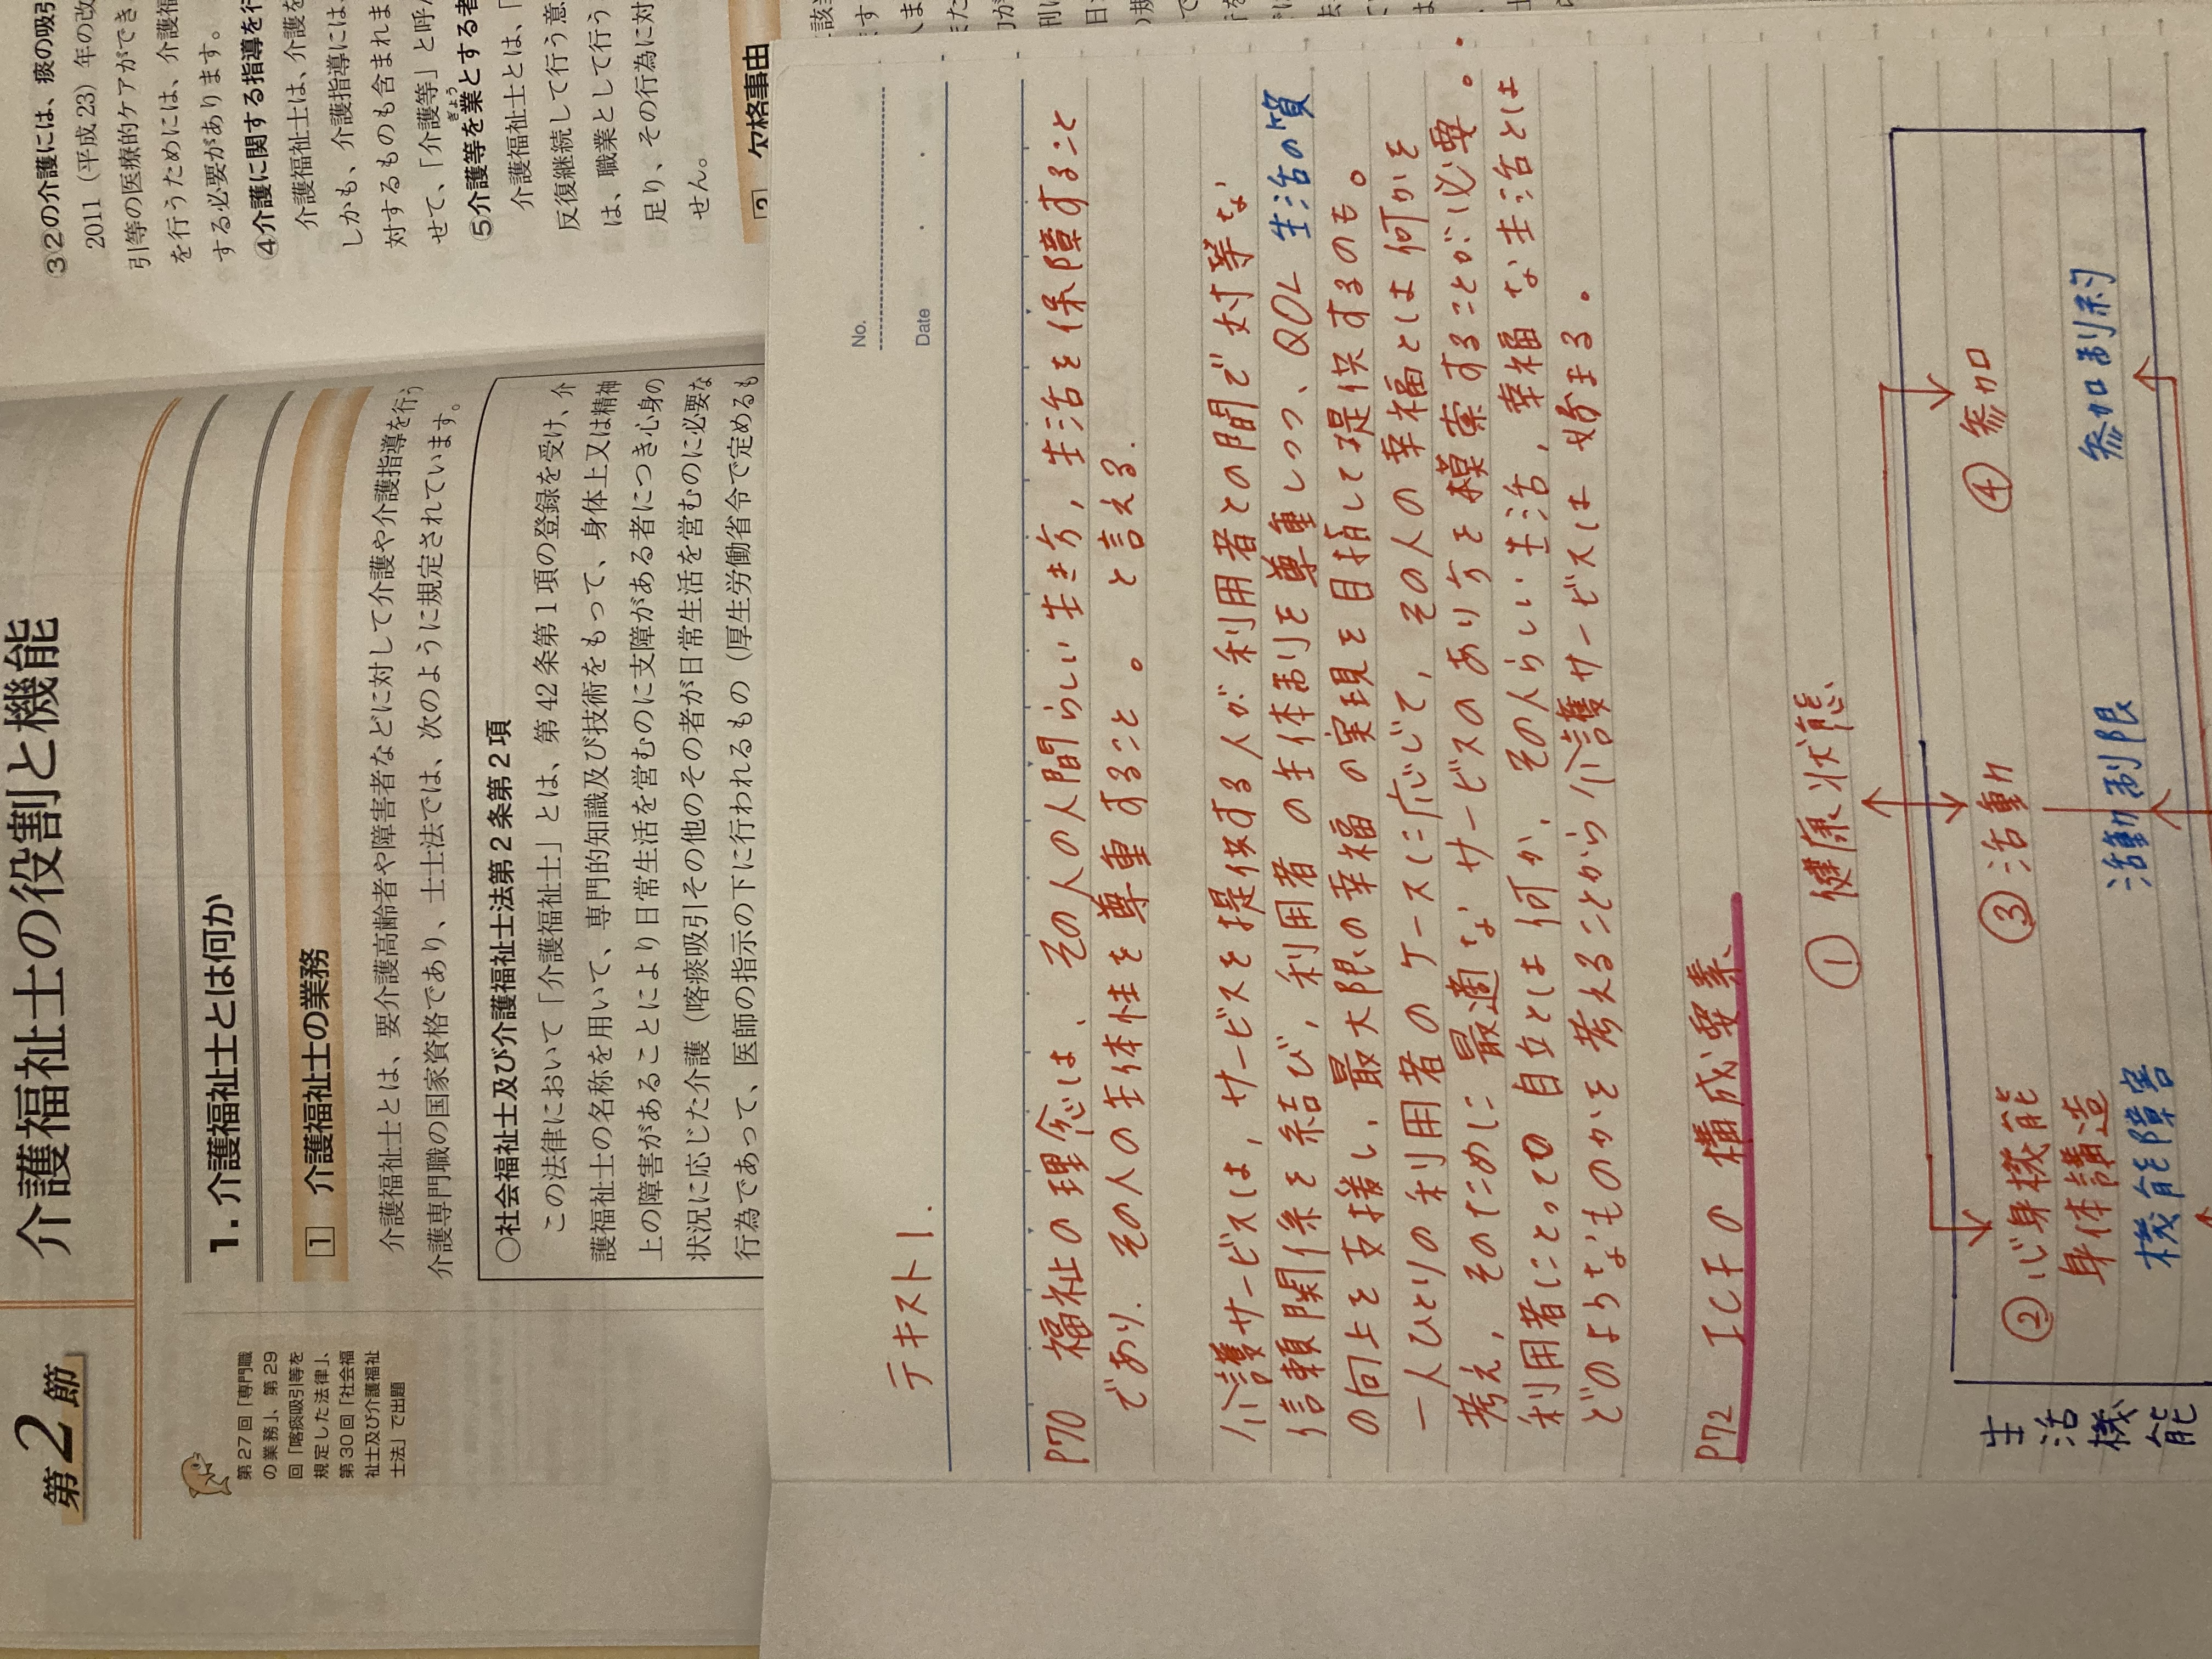 第2節
介護福祉士の役割と機能
1. 介護福祉士とは何か
1 介護福祉士の業務
介護福祉士とは、要介護高齢者や障害者などに対して介護や介護指導を行う
介護専門職の国家資格であり、士士法では、次のように規定されています。
○社会福祉士及び介護福祉士法第2条第2項
この法律において「介護福祉士」とは、第42条第1項の登録を受け、介
護福祉士の名称を用いて、専門的知識及び技術をもって、身体上又は精神
上の障害があることにより日常生活を営むのに支障がある者につき心身の
状況に応じた介護（喀痰吸引その他のその者が日常生活を営むのに必要な
行為であって、医師の指示の下に行われるもの（厚生労働省令で定めるも
第27回「専門職
の業務」、第29
回「喀痰吸引等を
規定した法律」、
第30回「社会福
祉士及び介護福祉
士法」で出題
③②の介護には、痰の吸引
2011（平成23）年の改
引等の医療的ケアができ
を行うためには、介護福
する必要があります。
④介護に関する指導を行
介護福祉士は、介護を
しかも、介護指導には、
対するものも含まれま
せて、「介護等」と呼
⑤介護等を業とする者
ぎょう
介護福祉士とは、「
反復継続して行う意
は、職業として行う
足り、その行為に対
せん。
欠格事由
No.
Date
テキスト1.
P70 福祉の理念は、その人の人間らしい生き方, 生活を保障すること
であり. その人の主体性を尊重すること。と言える.
介護サービスは, サービスを提供する人が利用者との間で対等な
信頼関係を結び, 利用者の主体制を尊重しつつ、QOL 生活の質
の向上を支援し, 最大限の幸福の実現を目指して提供するのも。
一人ひとりの利用者のケースに応じて, その人の幸福とは何かを
考え, そのために最適なサービスのあり方を模索することが必要。
利用者にとっての自立とは何か. その人らしい生活, 幸福な生活とは
どのようなものかを考えることから介護サービスは始まる。
P72 ICFの構成要素
① 健康状態
② 心身機能
身体講造
機能障害
③ 活動
活動制限
④ 参加
参加制約
生活機能